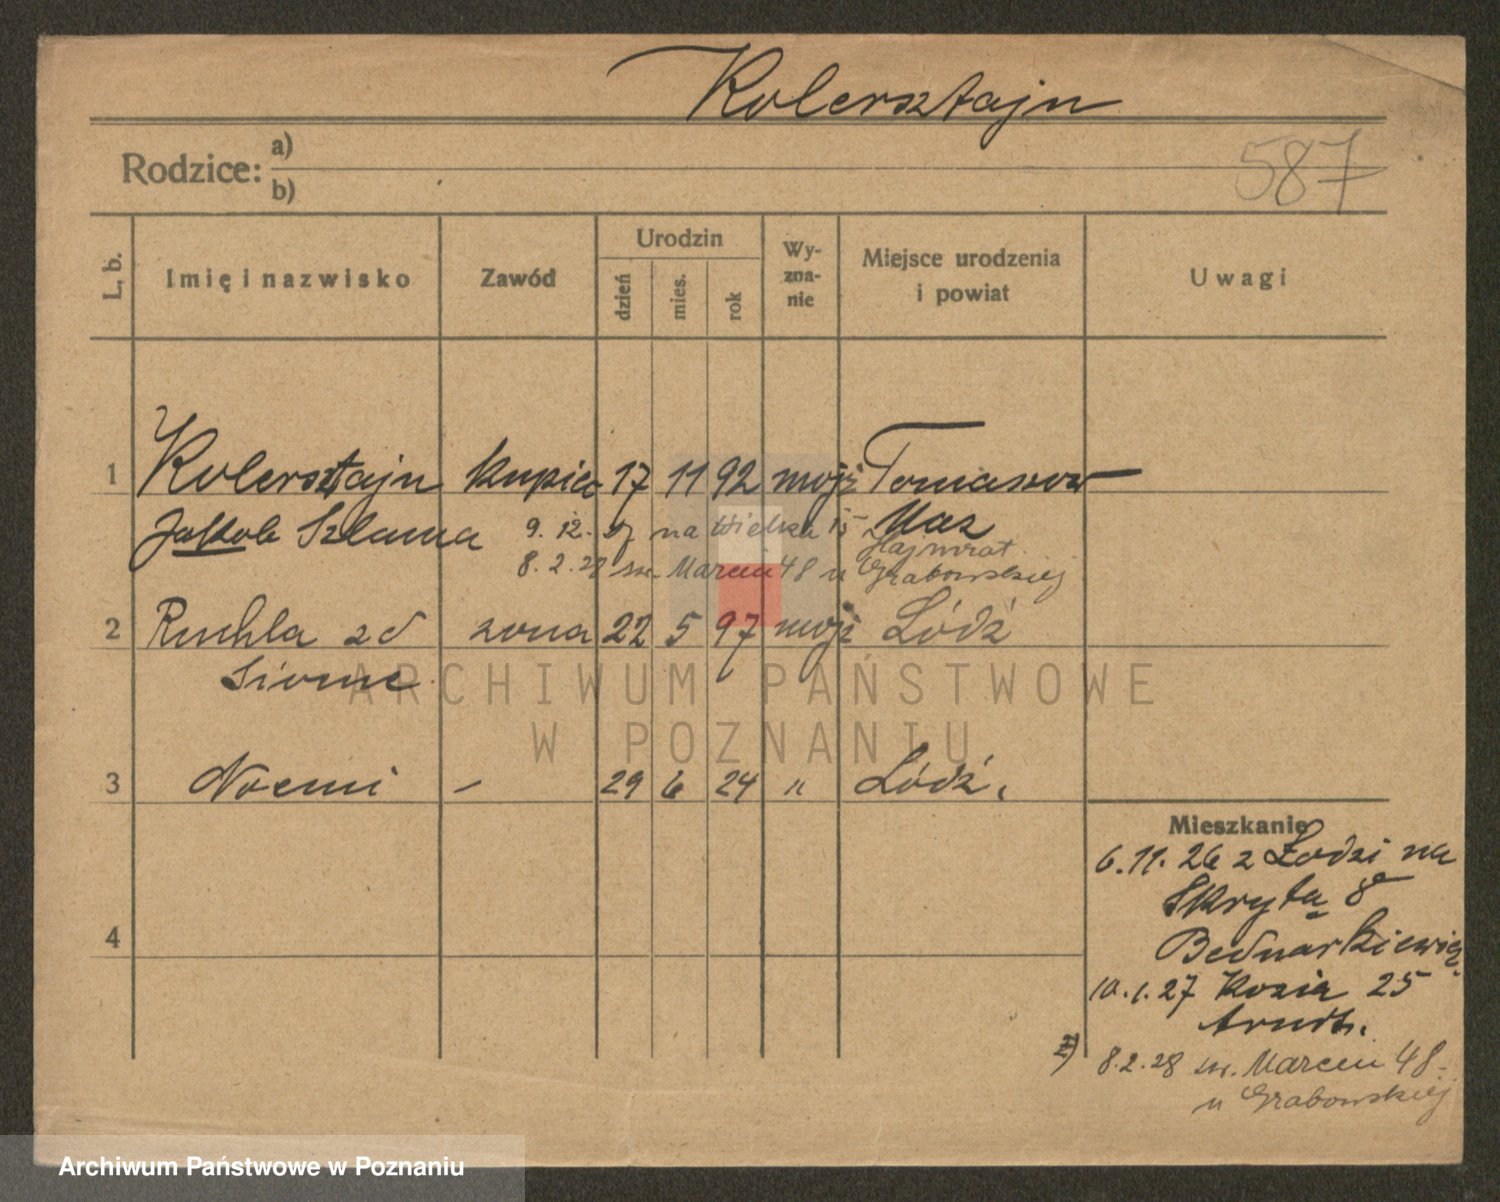 Kolersztajn
587
Rodzice: a)
b)
L. b.
Imię i nazwisko
Zawód
Urodzin
dzień
mies.
rok
Wy-
zna-
nie
Miejsce urodzenia
i powiat
Uwagi
1 Kolersztajn kupiec 17 11 92 mojż Tomaszow
Jakob Szlama Maz
9. 12. 27 na Wielka 15 z
Hajmrat
8. 2. 28 św. Marcin 48 u Grabowskiej
2 Ruchla zd żona 22 5 97 mojż Łódź
3 Noemi - 29 6 24 " Łódź.
4
Mieszkanie
6.11.26 z Łodzi na
Skryta 8
Bednarkiewicz
10.1.27 Kozia 25
Arndt.
8.2.28 św. Marcin 48
u Grabowskiej
ARCHIWUM PAŃSTWOWE
W POZNANIU
Archiwum Państwowe w Poznaniu